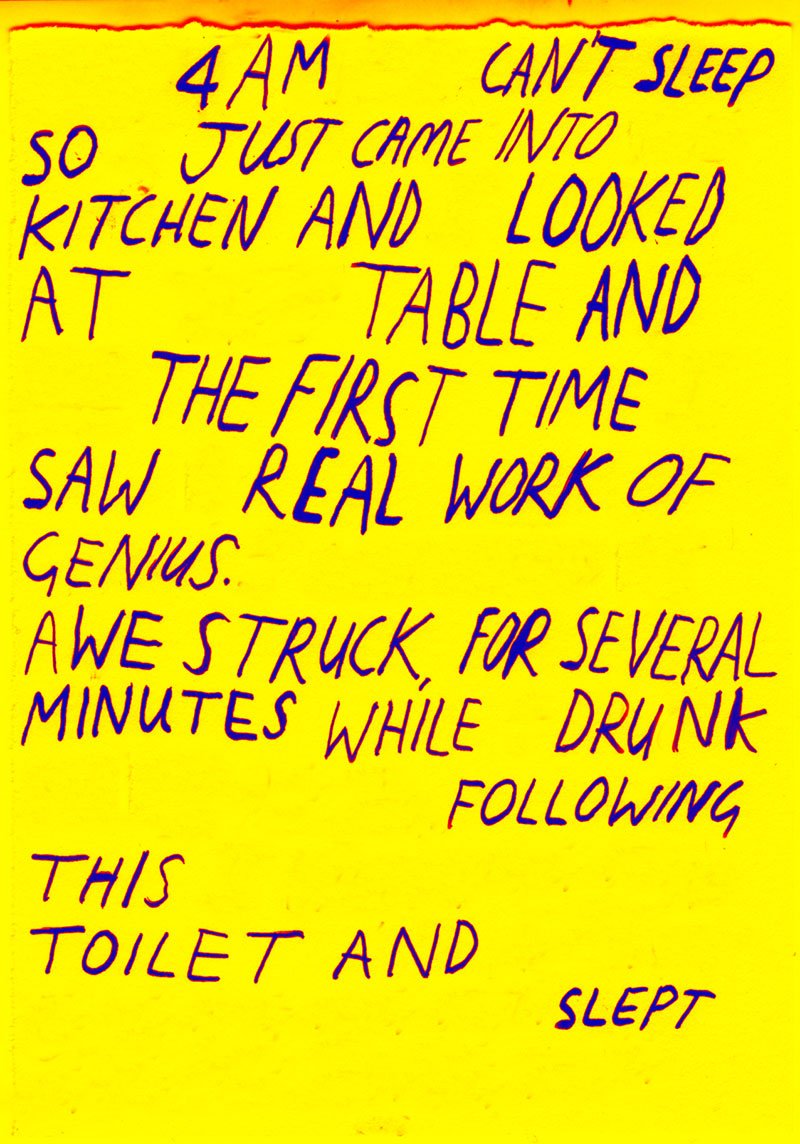 4 AM CAN'T SLEEP
SO JUST CAME INTO
KITCHEN AND LOOKED
AT TABLE AND
THE FIRST TIME
SAW REAL WORK OF
GENIUS.
AWE STRUCK, FOR SEVERAL
MINUTES WHILE DRUNK
FOLLOWING
THIS
TOILET AND
SLEPT